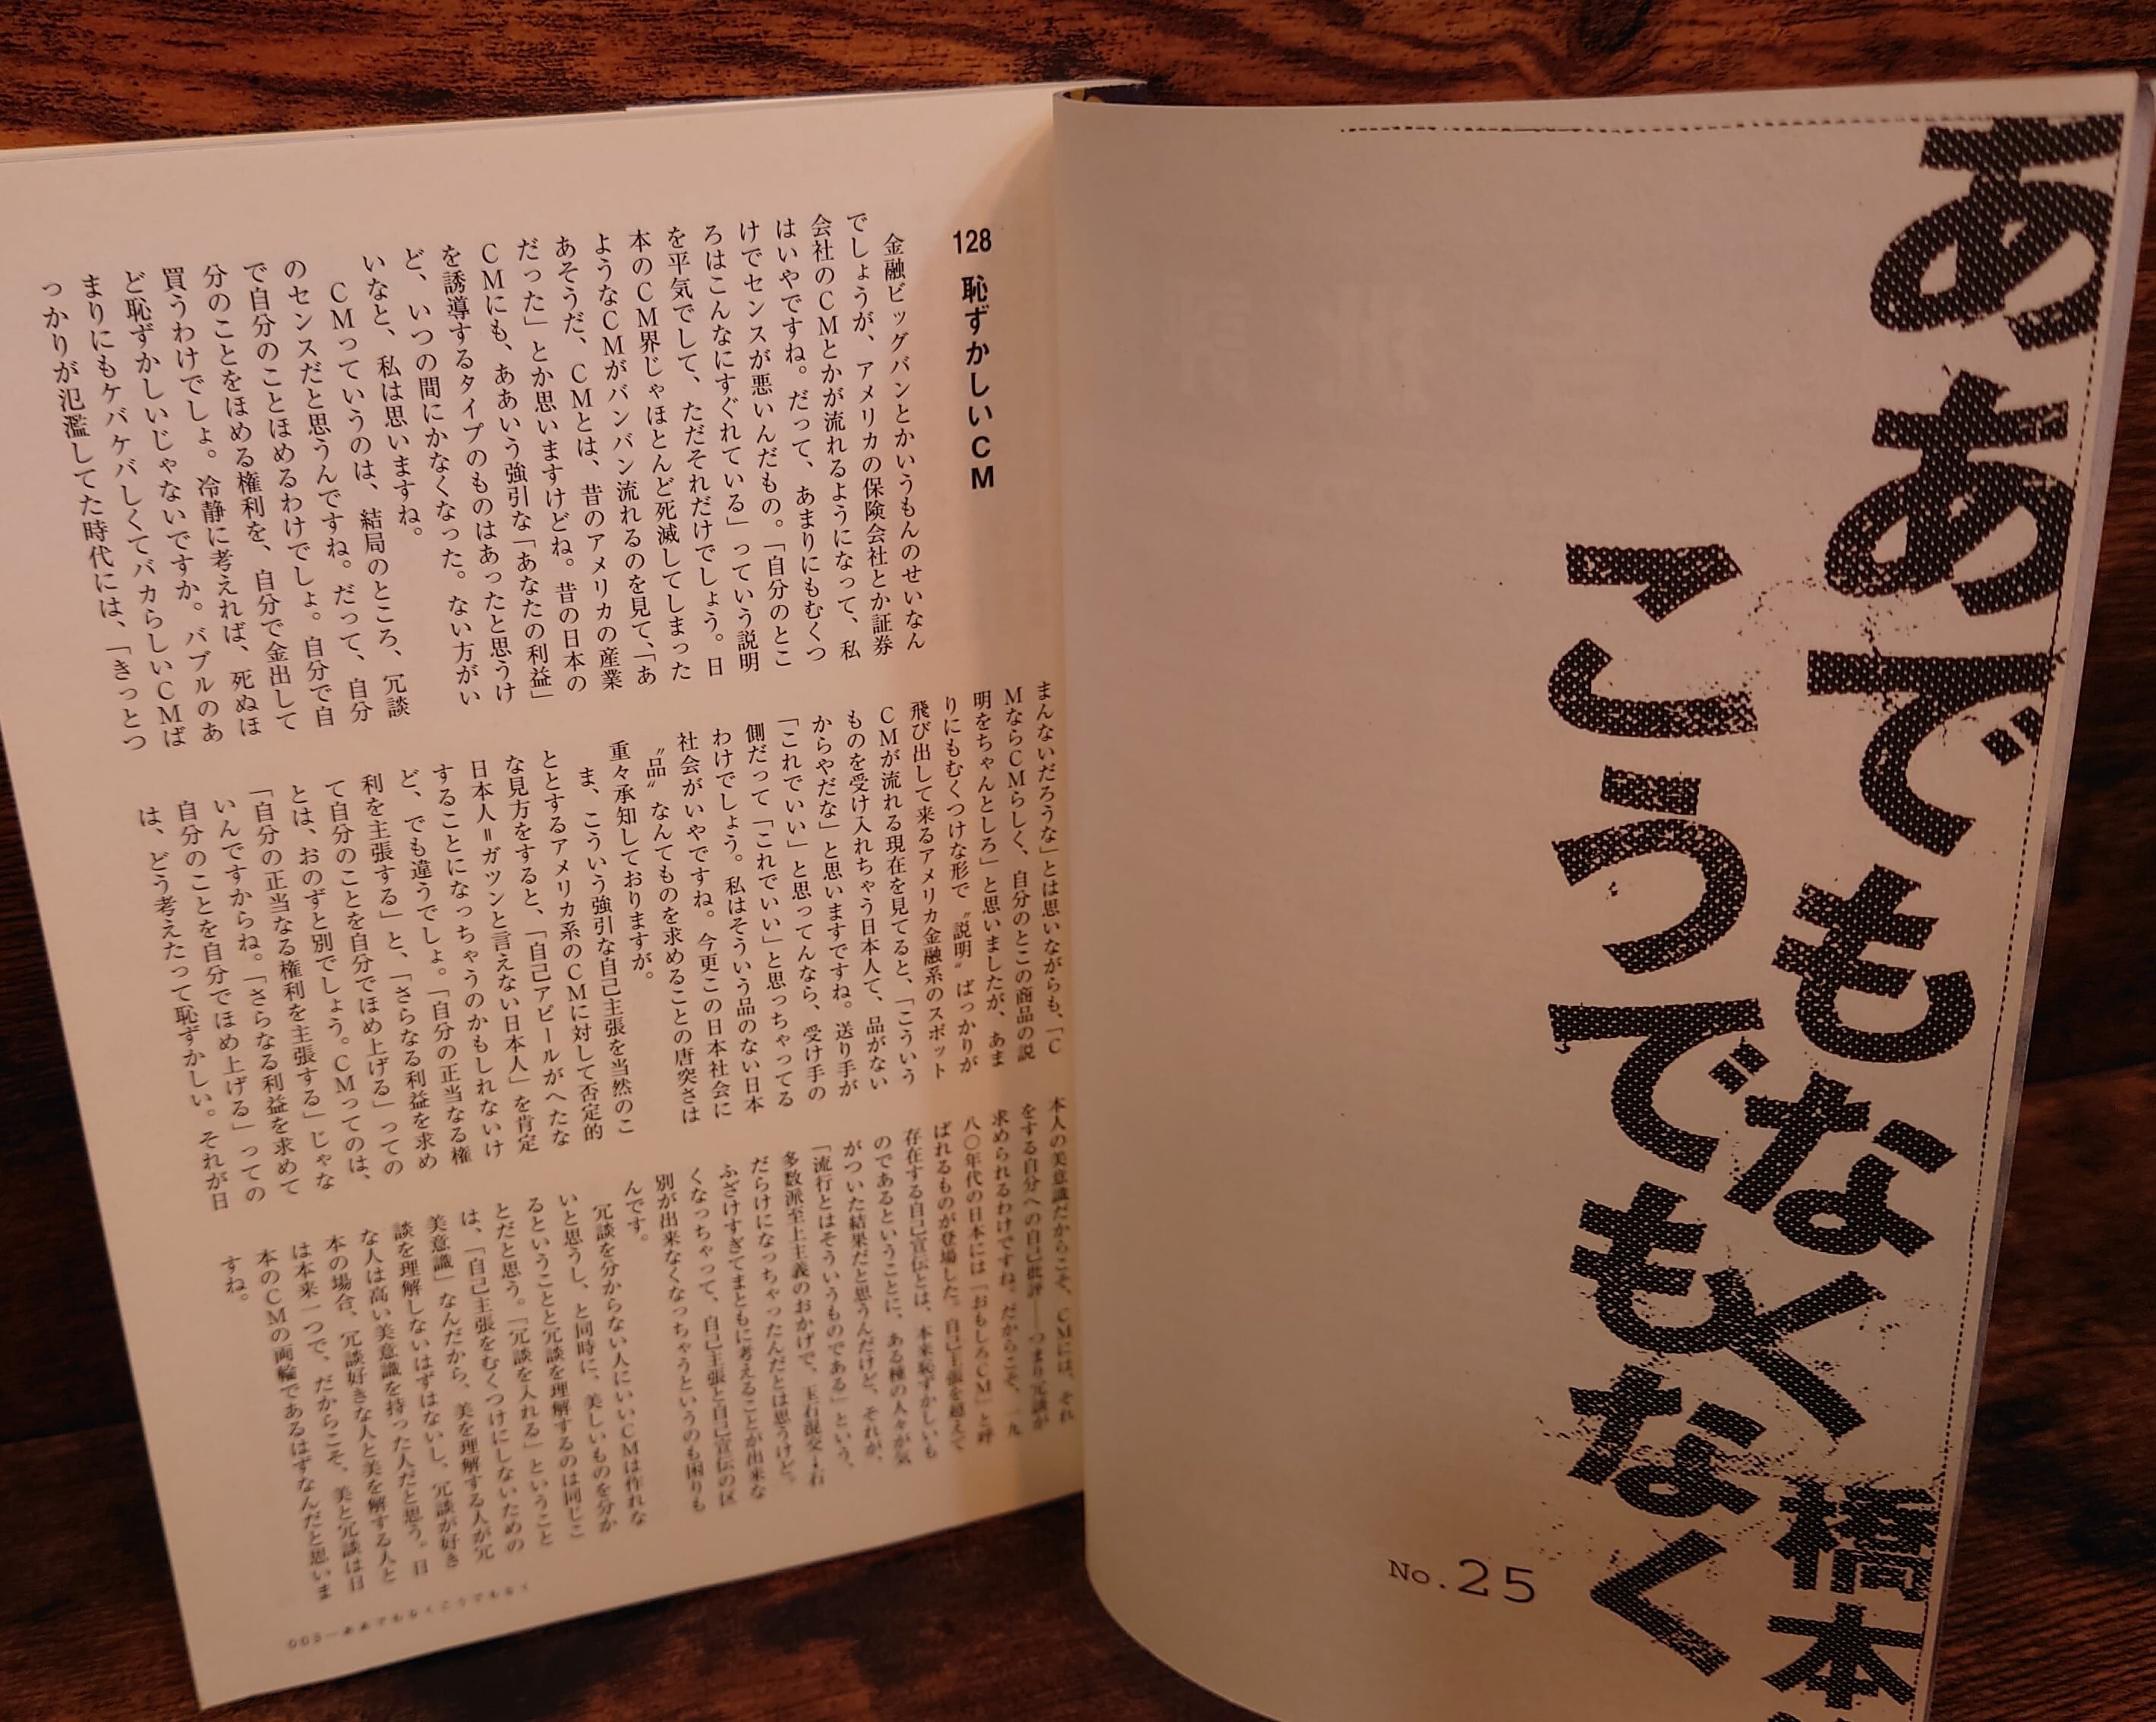 ああでもなく
こうでもなく
橋本
No.25
128 恥ずかしいCM
金融ビッグバンとかいうもんのせいなん
でしょうが、アメリカの保険会社とか証券
会社のCMとかが流れるようになって、私
はいやですね。だって、あまりにもむくつ
けでセンスが悪いんだもの。「自分のとこ
ろはこんなにすぐれている」っていう説明
を平気でして、ただそれだけでしょう。日
本のCM界じゃほとんど死滅してしまった
ようなCMがバンバン流れるのを見て、「あ
あそうだ、CMとは、昔のアメリカの産業
だった」とか思いますけどね。昔の日本の
CMにも、ああいう強引な「あなたの利益」
を誘導するタイプのものはあったと思うけ
ど、いつの間にかなくなった。ない方がい
いなと、私は思いますね。
CMっていうのは、結局のところ、冗談
のセンスだと思うんですね。だって、自分
で自分のことほめるわけでしょ。自分で自
分のことをほめる権利を、自分で金出して
買うわけでしょ。冷静に考えれば、死ぬほ
ど恥ずかしいじゃないですか。バブルのあ
まりにもケバケバしくてバカらしいCMば
っかりが氾濫してた時代には、「きっとつ
まんないだろうな」とは思いながらも、「C
MならCMらしく、自分のとこの商品の説
明をちゃんとしろ」と思いましたが、あま
りにもむくつけな形で〝説明〟ばっかりが
飛び出して来るアメリカ金融系のスポット
CMが流れる現在を見てると、「こういう
ものを受け入れちゃう日本人て、品がない
からやだな」と思いますですね。送り手が
「これでいい」と思ってんなら、受け手の
側だって「これでいい」と思っちゃってる
わけでしょう。私はそういう品のない日本
社会がいやですね。今更この日本社会に
〝品〟なんてものを求めることの唐突さは
重々承知しておりますが。
ま、こういう強引な自己主張を当然のこ
ととするアメリカ系のCMに対して否定的
な見方をすると、「自己アピールがへたな
日本人＝ガツンと言えない日本人」を肯定
することになっちゃうのかもしれないけ
ど、でも違うでしょ。「自分の正当なる権
利を主張する」と、「さらなる利益を求め
て自分のことを自分でほめ上げる」っての
とは、おのずと別でしょう。CMってのは、
「自分の正当なる権利を主張する」じゃな
いんですからね。「さらなる利益を求めて
自分のことを自分でほめ上げる」っての
は、どう考えたって恥ずかしい。それが日
本人の美意識だからこそ、CMには、それ
をする自分への自己批評——つまり冗談が
求められるわけですね。だからこそ、一九
八〇年代の日本には「おもしろCM」と呼
ばれるものが登場した。自己主張を超えて
存在する自己宣伝とは、本来恥ずかしいも
のであるということに、ある種の人々が気
がついた結果だと思うんだけど、それが、
「流行とはそういうものである」という、
多数派至上主義のおかげで、玉石混交→石
だらけになっちゃったんだとは思うけど。
ふざけすぎてまともに考えることが出来な
くなっちゃって、自己主張と自己宣伝の区
別が出来なくなっちゃうというのも困りも
んです。
冗談を分からない人にいいCMは作れな
いと思うし、と同時に、美しいものを分か
るということと冗談を理解するのは同じこ
とだと思う。「冗談を入れる」ということ
は、「自己主張をむくつけにしないための
美意識」なんだから、美を理解する人が冗
談を理解しないはずはないし、冗談が好き
な人は高い美意識を持った人だと思う。日
本の場合、冗談好きな人と美を解する人と
は本来一つで、だからこそ、美と冗談は日
本のCMの両輪であるはずなんだと思いま
すね。
009—ああでもなくこうでもなく